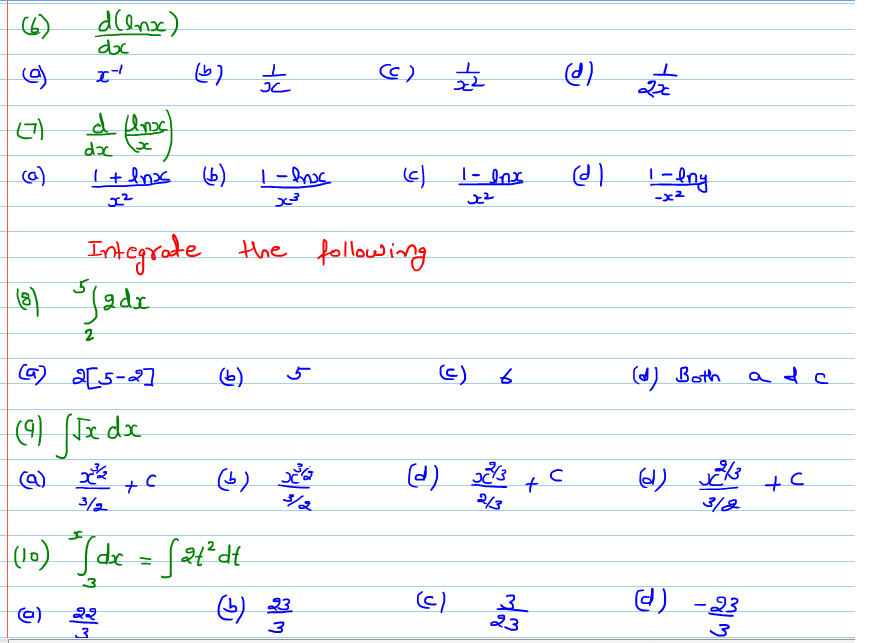 (6) d(lnx)/dx
(a) x⁻¹ (b) 1/x (c) 1/x² (d) 1/2x
(7) d/dx (lnx/x)
(a) 1 + lnx/x² (b) 1 - lnx/x³ (c) 1 - lnx/x² (d) 1 - lny/-x²
Integrate the following
(8) ₂⁵∫ 2dx
(a) 2[5-2] (b) 5 (c) 6 (d) Both a & c
(9) ∫√x dx
(a) x^3/2 / 3/2 + C (b) x^3/2 / 3/2 (d) x^2/3 / 2/3 + C (d) x^2/3 / 3/2 + C
(10) ₃ˣ∫ dx = ∫ 2t² dt
(a) 22/3 (b) 23/3 (c) 3/23 (d) -23/3